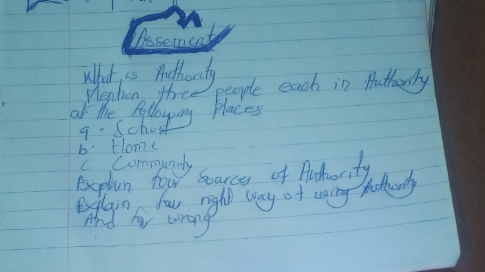 Assement
What is Authority
Mention three people each in Authority
at the following places
a. School
b. Home
c. Community
Explain four sources of Authority
Explain four right way of using Authority
And for wrong